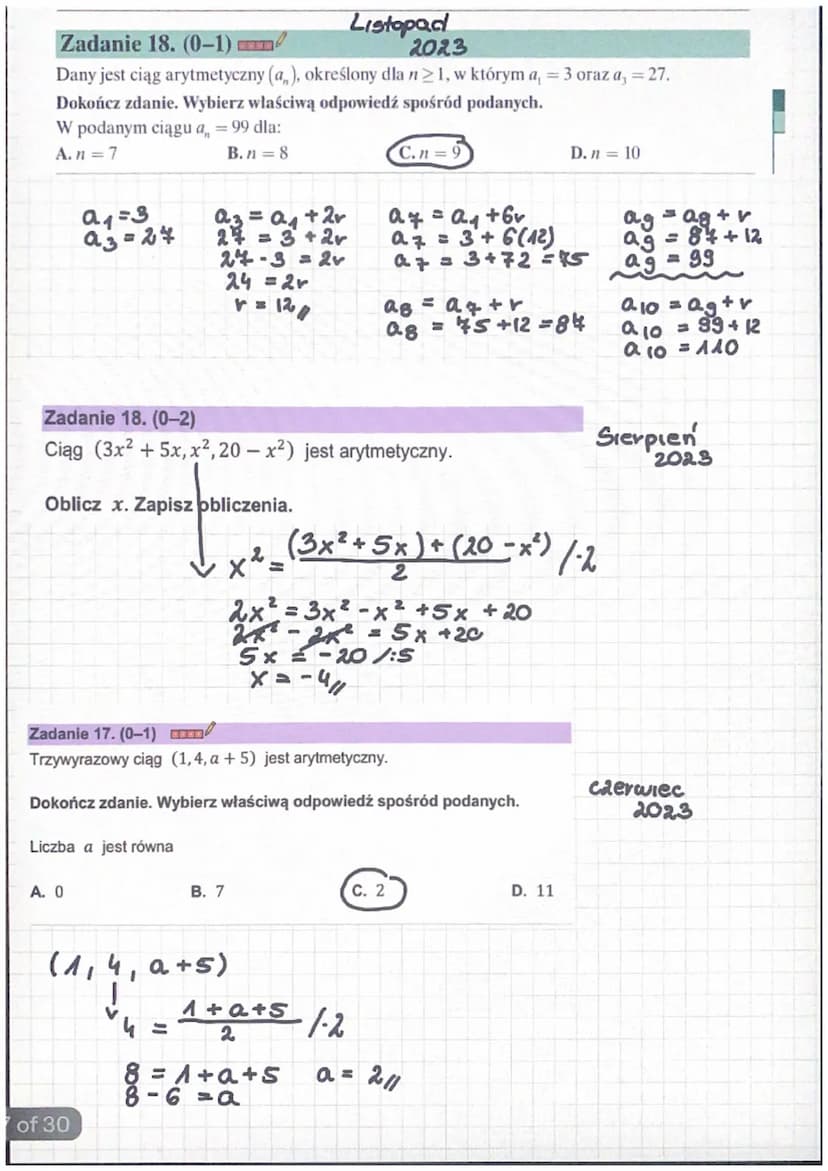 Listopad
2023
Zadanie 18. (0–1)
Dany jest ciąg arytmetyczny (aₙ), określony dla n ≥ 1, w którym a₁ = 3 oraz a₃ = 27.
Dokończ zdanie. Wybierz właściwą odpowiedź spośród podanych.
W podanym ciągu aₙ = 99 dla:
A. n = 7 B. n = 8 C. n = 9 D. n = 10
a₁ = 3
a₃ = 27
a₃ = a₁ + 2r
27 = 3 + 2r
27 - 3 = 2r
24 = 2r
r = 12
a₇ = a₁ + 6r
a₇ = 3 + 6(12)
a₇ = 3 + 72 = 75
a₈ = a₇ + r
a₈ = 75 + 12 = 87
a₉ = a₈ + r
a₉ = 87 + 12
a₉ = 99
a₁₀ = a₉ + r
a₁₀ = 99 + 12
a₁₀ = 110
Zadanie 18. (0–2)
Ciąg (3x² + 5x, x², 20 – x²) jest arytmetyczny.
Sierpień
2023
Oblicz x. Zapisz obliczenia.
x² = (3x² + 5x) + (20 - x²) / 2 /·2
2x² = 3x² - x² + 5x + 20
2x² - 2x² = 5x + 20
5x = -20 /:5
x = -4
Zadanie 17. (0–1)
Trzywyrazowy ciąg (1, 4, a + 5) jest arytmetyczny.
Czerwiec
2023
Dokończ zdanie. Wybierz właściwą odpowiedź spośród podanych.
Liczba a jest równa
A. 0 B. 7 C. 2 D. 11
(1, 4, a + 5)
4 = 1 + a + 5 / 2 /·2
8 = 1 + a + 5 a = 2
8 - 6 = a
of 30